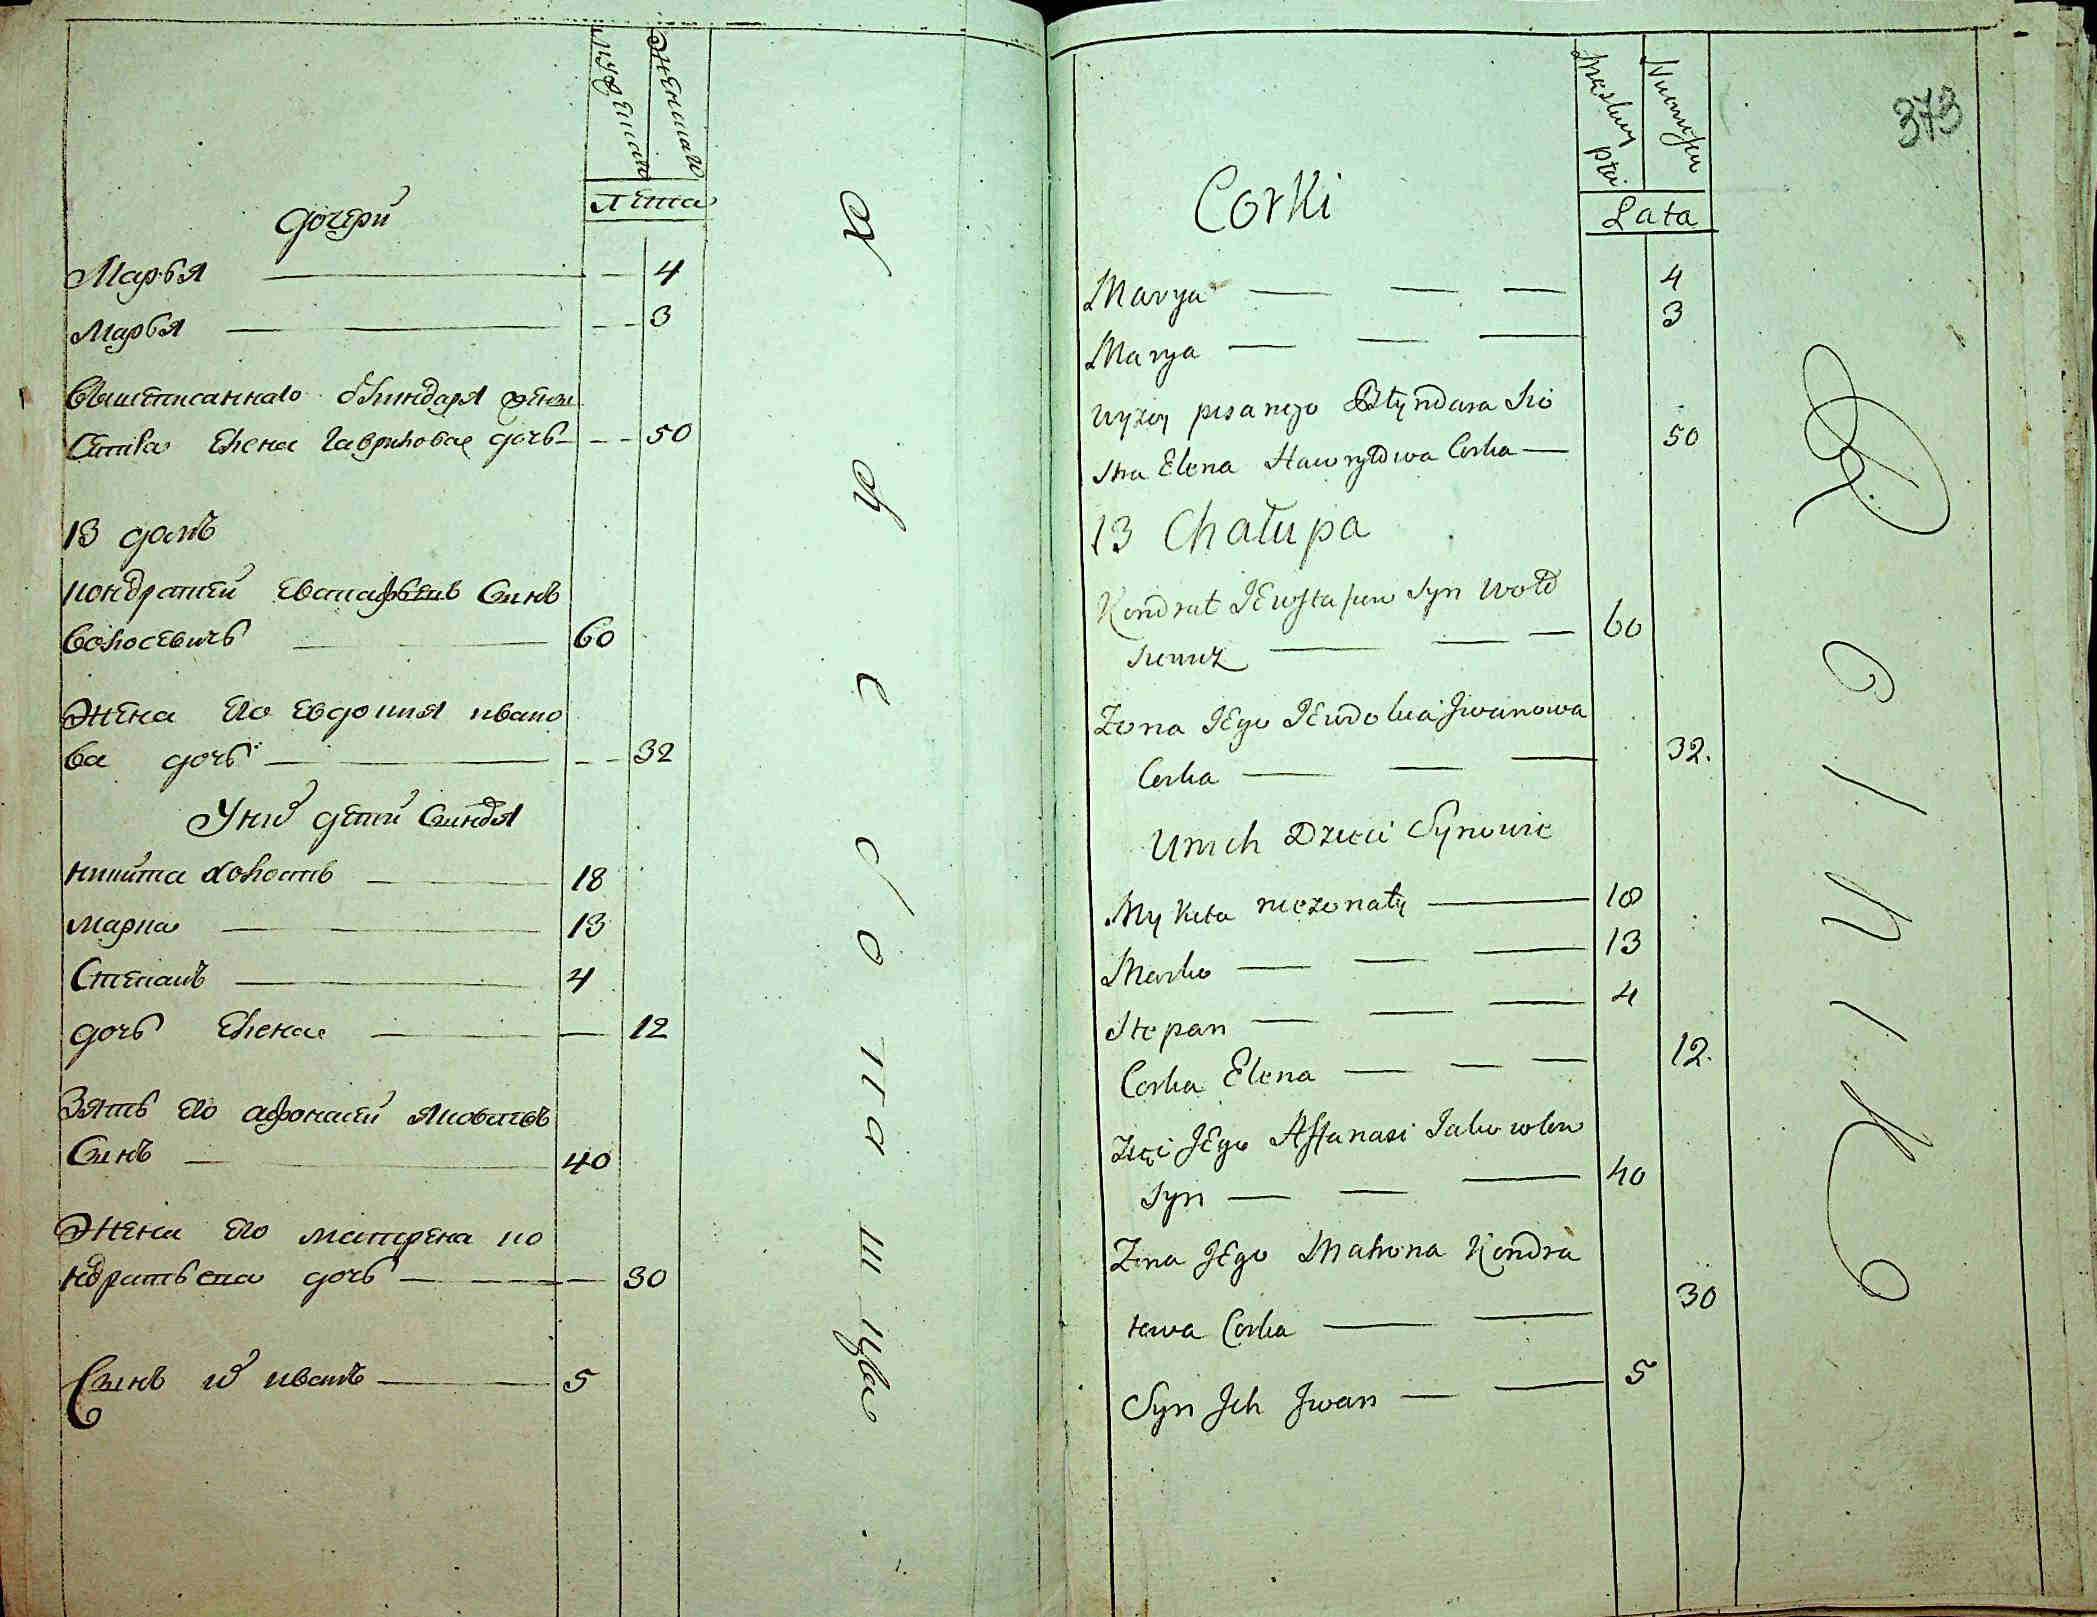 мужеска
женска
Лета
дочери
Марья 4
Марья 3
Вышеписанного блиндаря жены
Сестра Елена Гаврилова дочь 50
13 домъ
Кондратей Евстафьевъ Сынъ
Волосевичъ 60
Жена Его Евдокия ивано
ва дочь 32
У них дети Сыновя
никита холостъ 18
марко 13
Степанъ 4
дочь Елена 12
Зять Его афонасей Яковлевъ
Сынъ 40
Жена Его матрена ко
ндратьева дочь 30
Сынъ их иванъ 5
373
Męskiey płci
Lata
Corki
Marya 4
Marya 3
wyżey pisanego Błyndara Sio
stra Elena Hawryłowa Corka 50
13 Chałupa
Kondrat JEwstafiew Syn Woło
siewicz 60
Zona JEgo JEwdokia Jwanowa
Corka 32.
U nich Dzieci Synowie
Mykita nieżonaty 18
Marko 13
Stepan 4
Corka Elena 12.
Zięć JEgo Affanasi Jakowlew
Syn 40
Zona JEgo Matrona Kondra
tewa Corka 30
Syn Jch Jwan 5